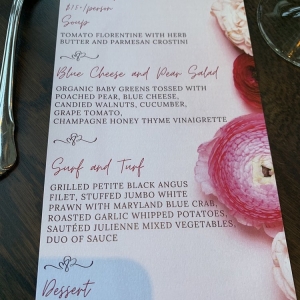 Soup
TOMATO FLORENTINE WITH HERB
BUTTER AND PARMESAN CROSTINI
Blue Cheese and Pear Salad
ORGANIC BABY GREENS TOSSED WITH
POACHED PEAR, BLUE CHEESE,
CANDIED WALNUTS, CUCUMBER,
GRAPE TOMATO,
CHAMPAGNE HONEY THYME VINAIGRETTE
Surf and Turf
GRILLED PETITE BLACK ANGUS
FILET, STUFFED JUMBO WHITE
PRAWN WITH MARYLAND BLUE CRAB,
ROASTED GARLIC WHIPPED POTATOES,
SAUTÉED JULIENNE MIXED VEGETABLES,
DUO OF SAUCE
Dessert